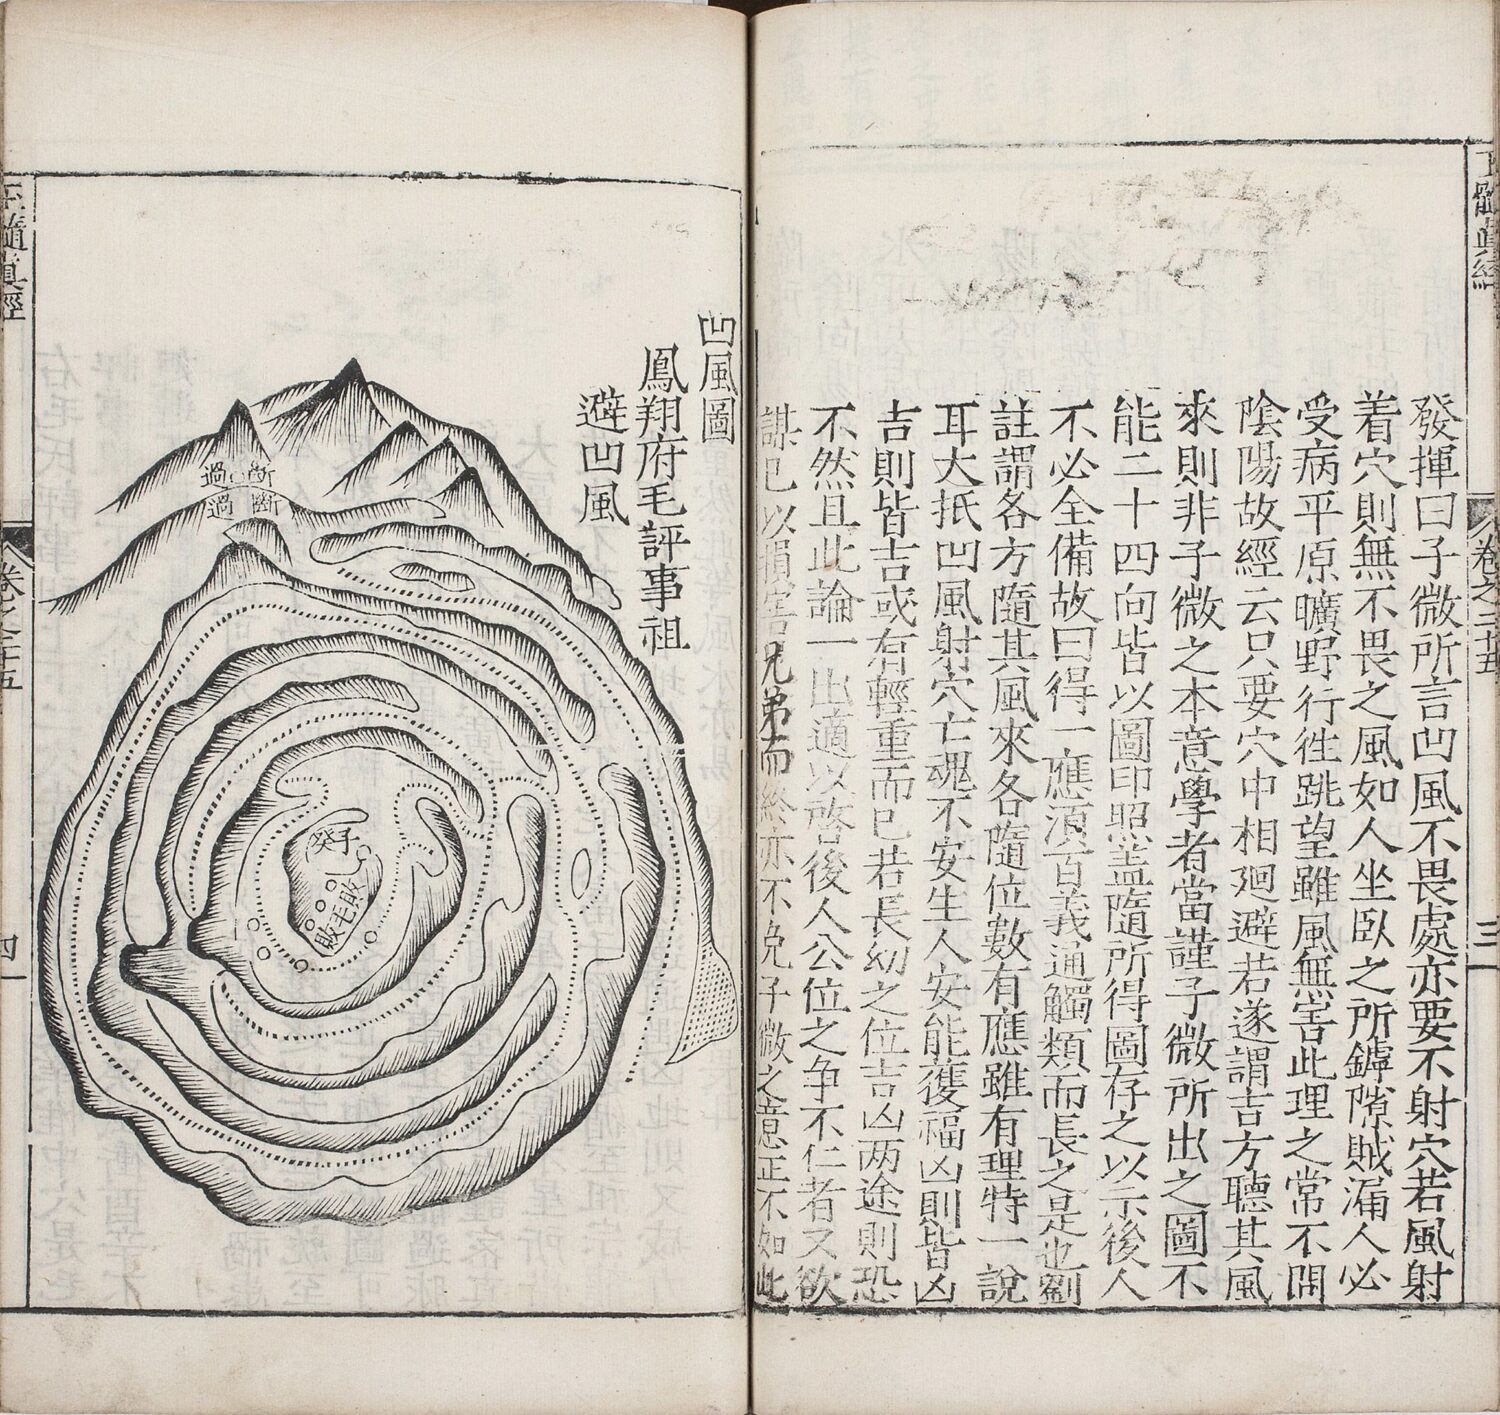 玉髓真經
卷之二十五
三
發揮曰子微所言凹風不畏處亦要不射穴若風射
着穴則無不畏之風如人坐臥之所罅隙賊漏人必
受病平原曠野行徃眺望雖風無害此理之常不関
陰陽故經云只要穴中相廻避若遂謂吉方聽其風
來則非子微之本意學者當謹子微所出之圖不
能二十四向皆以圖印照盖隨所得圖存之以示後人
不必全備故曰得一應須百義通觸類而長之是也劉
註謂各方隨其風來各隨位數有應雖有理特一說
耳大抵凹風射穴亡魂不安生人安能獲福凶則皆凶
吉則皆吉或有輕重而已若長幼之位吉凶两途則恐
不然且此論一出適以啓後人公位之争不仁者又欲
謀已以損害兄弟而終亦不免子微之意正不如此
凹風圖
鳳翔府毛評事祖
避凹風
過 断
過 斷
癸子
敗毛敗
玉髓真經
卷之二十五
四